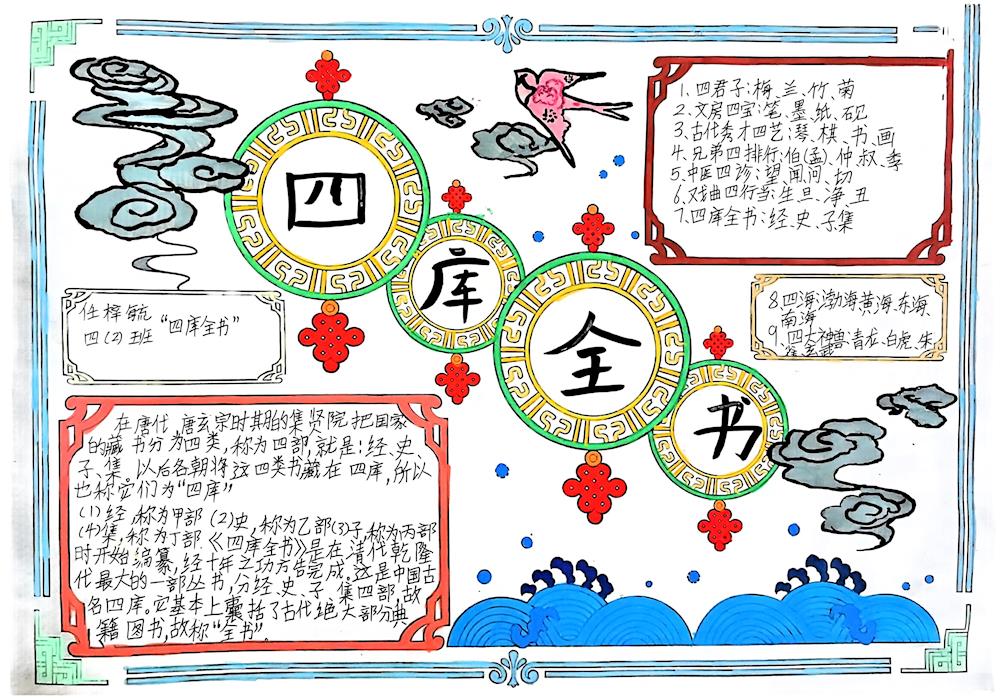 四库全书
任梓毓
四(2)班 “四库全书”
1.四君子:梅、兰、竹、菊
2.文房四宝:笔、墨、纸、砚
3.古代秀才四艺:琴、棋、书、画
4.兄弟四排行:伯(孟)、仲、叔、季
5.中医四诊:望、闻、问、切
6.戏曲四行当:生、旦、净、丑
7.四库全书:经、史、子、集
8.四海:渤海、黄海、东海、
南海
9.四大神兽:青龙、白虎、朱
雀、玄武
在唐代,唐玄宗时期的集贤院,把国家
的藏书分为四类,称为四部,就是:经、史、
子、集。以后各朝将这四类书藏在四库,所以
也称它们为“四库”
(1)经,称为甲部 (2)史,称为乙部(3)子,称为丙部
(4)集,称为丁部.《四库全书》是在清代乾隆
时开始编纂,经十年之功方告完成。这是中国古
代最大的一部丛书,分经、史、子、集四部,故
名四库。它基本上囊括了古代绝大部分典
籍图书,故称“全书”。